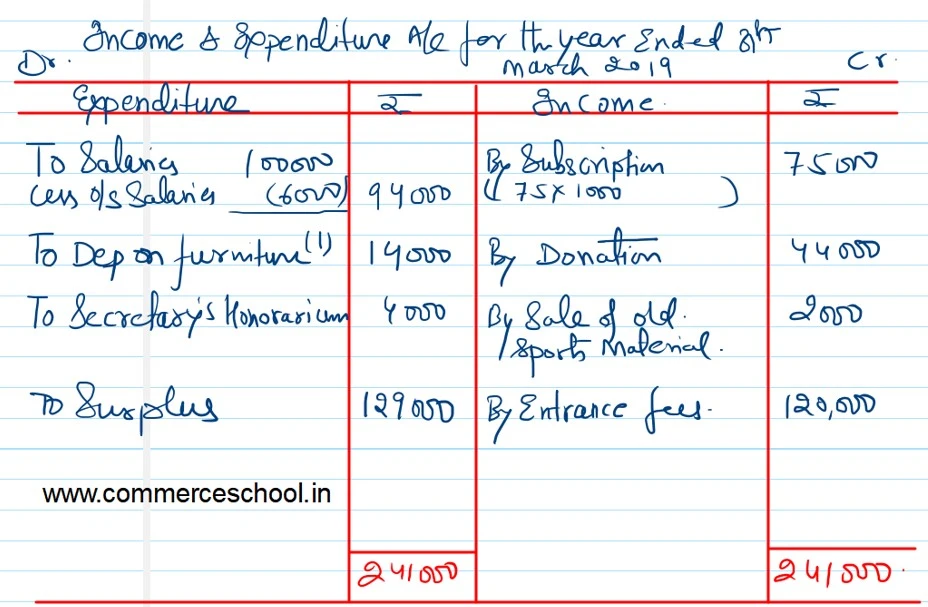 Income & Expenditure A/c for the year Ended 31st
March 2019
Dr. Cr.
Expenditure ₹ Income ₹
To Salaries 100000 By Subscription 75000
Less o/s Salaries (6000) 94000 (75 x 1000 )
To Dep on furniture (1) 14000 By Donation 44000
To Secretary's Honorarium 4000 By Sale of old 2000
Sports Material.
To Surplus 129000 By Entrance fees. 120,000
www.commerceschool.in
241000 241000